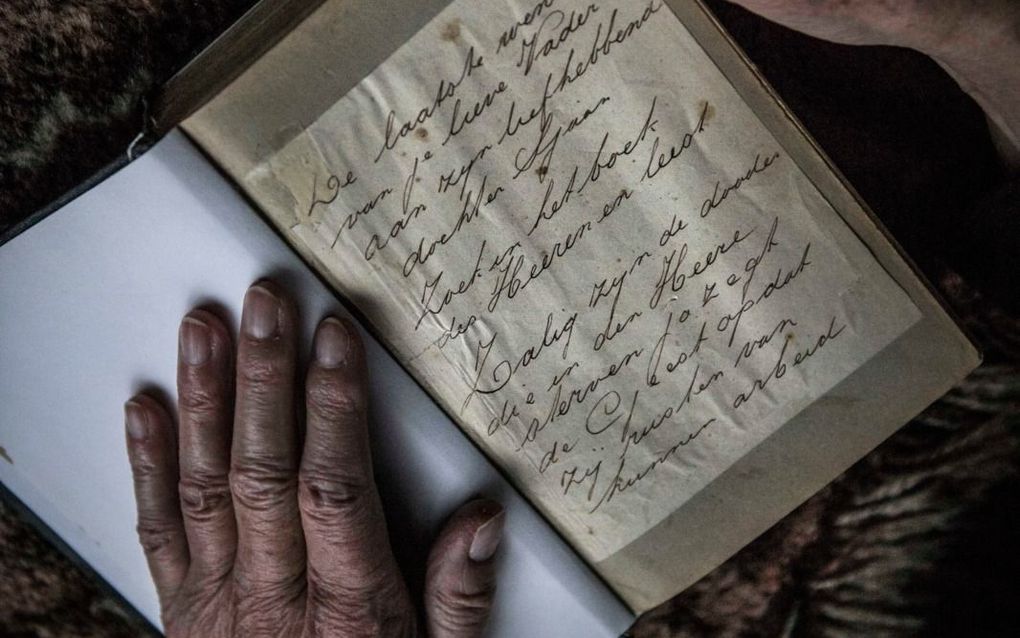 De laatste wen
van je lieve Vader
aan zyn liefhebbend
dochter Sjaan
Zoek in het boek
des Heeren en leest
Zalig zijn de dooden
die in den Heere
sterven ja zegt
de Geest opdat
zij rusten van
hunnen arbeid